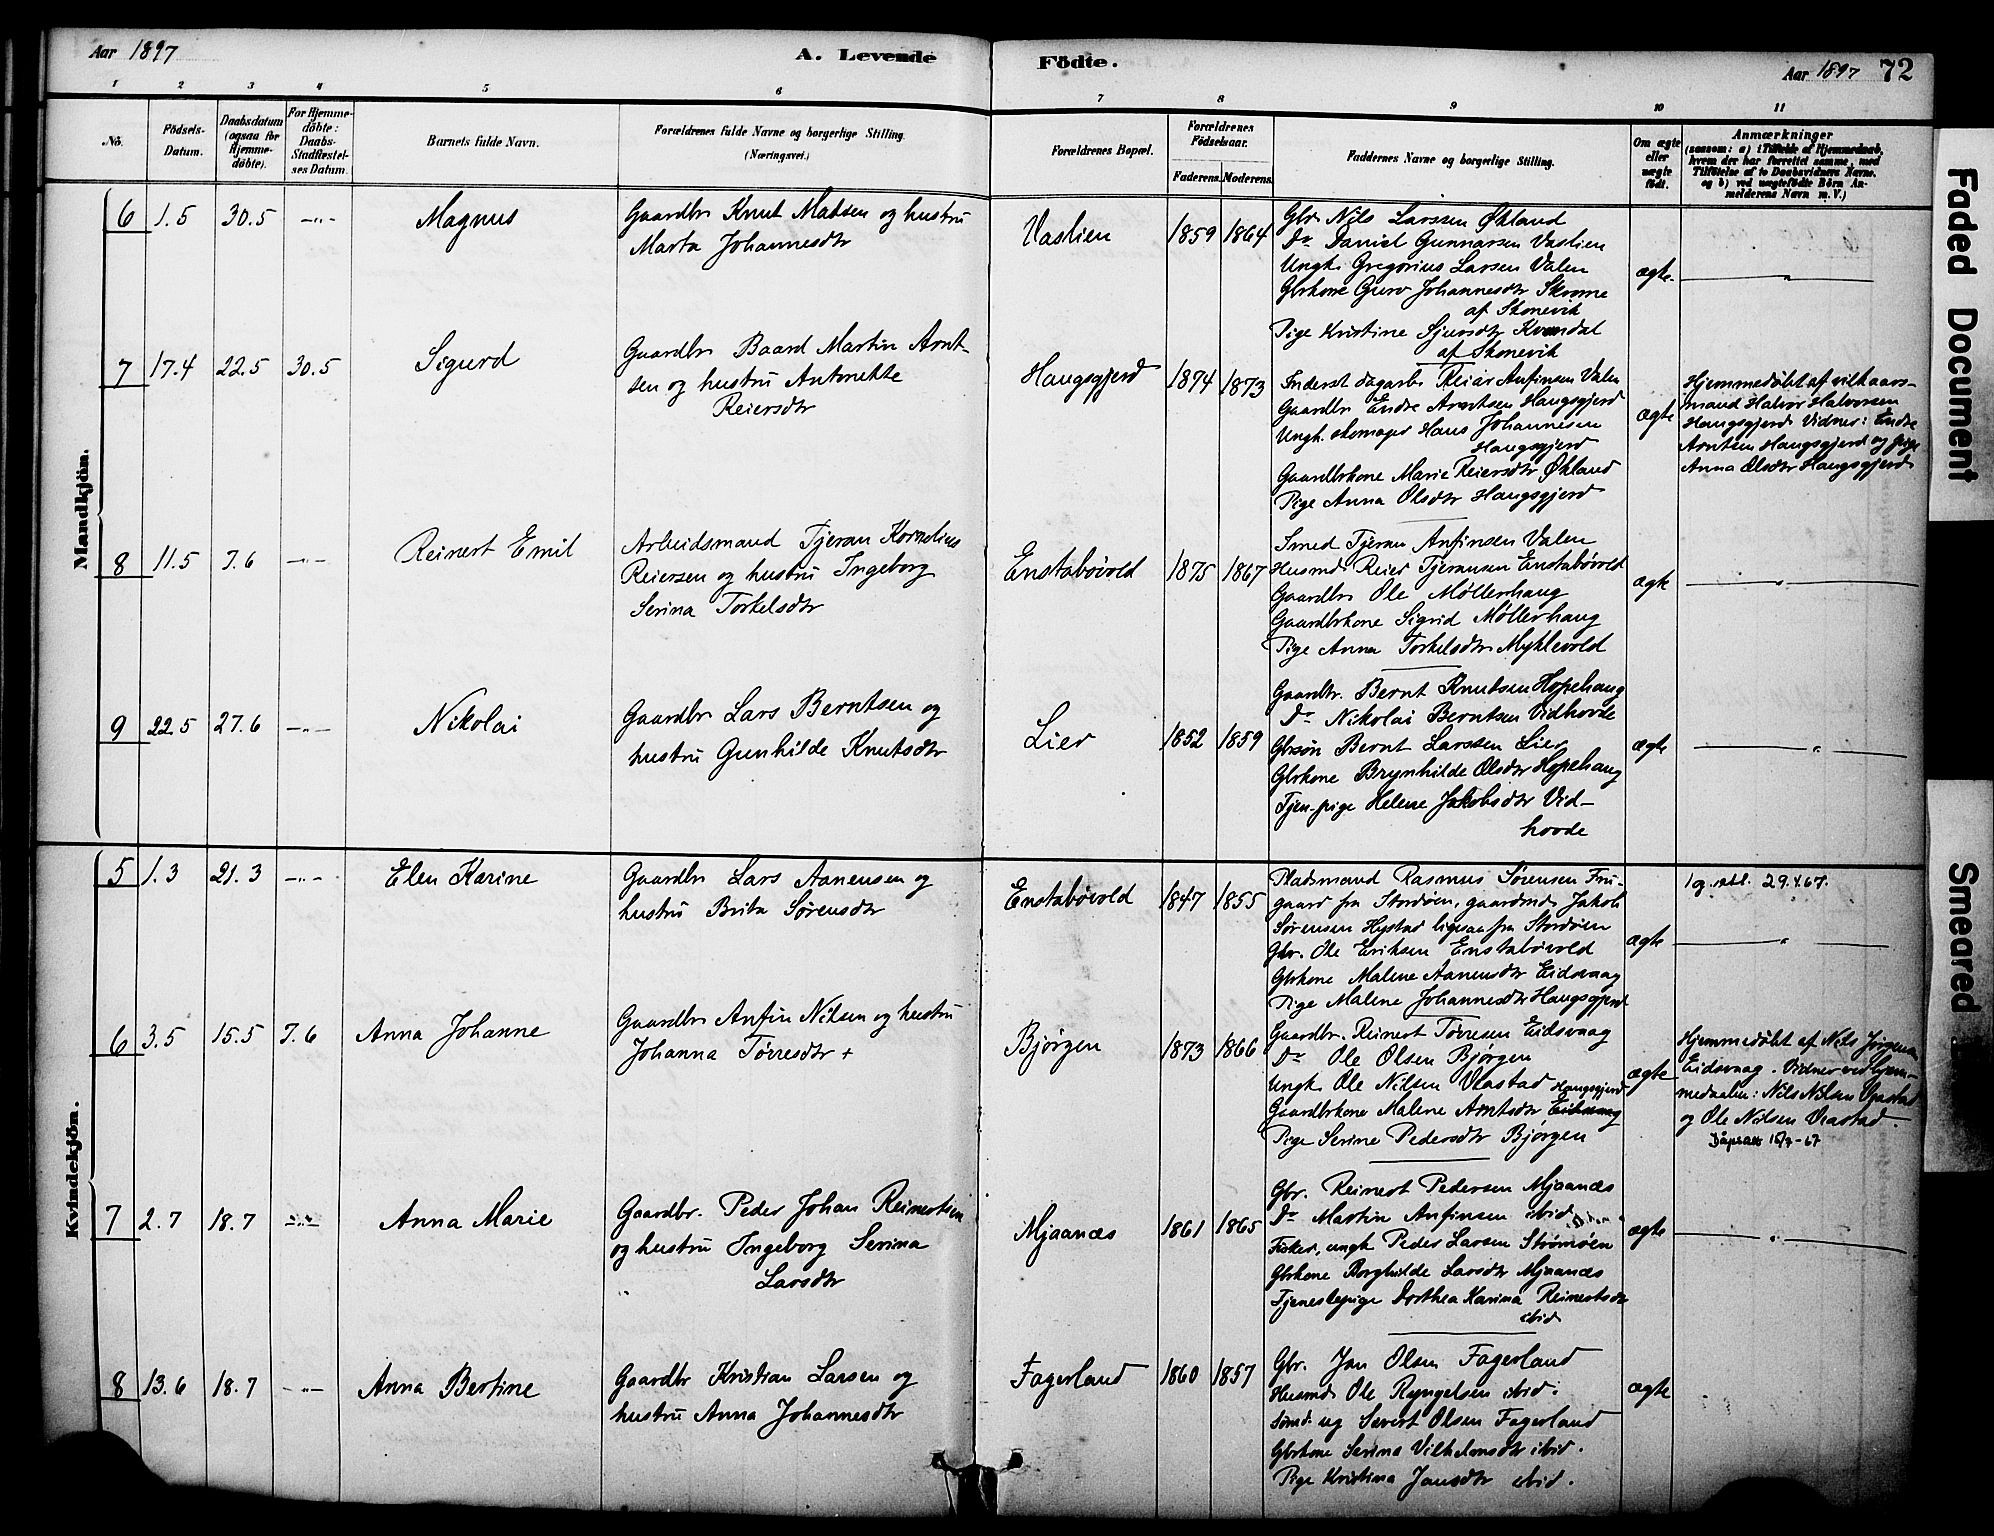 Aar 1897
A. Levende
Födte.
Aar 1897 72
1 2 3 4 5 6 7 8 9 10 11
No.
Födsels-
Datum.
Daabsdatum
(ogsaa for
Hjemme-
döbte).
For Hjemme-
döbte:
Daabs-
Stadfæstel-
ses Datum.
Barnets fulde Navn.
Forældrenes fulde Navne og borgerlige Stilling.
(Næringsvei.)
Forældrenes Bopæl.
Forældrenes
Födselsaar.
Faderens. Moderens.
Faddernes Navne og borgerlige Stilling.
Om ægte
eller
uægte
födt.
Anmærkninger
(saasom: a) i Tilfælde af Hjemmedaab,
hvem der har forrettet samme, med
Tilföielse af to Daabsvidners Navne.
og b) ved uægtefödte Börn An-
melderens Navn m. V.)
Mandkjön.
6 1.5 30.5 —„— Magnus
Gaardbr Knut Matsen og hustru
Marta Johannesdtr
Vaslien 1859 1864
Gbr Nils Larssen Økland
Do Daniel Gunnarsen Vaslien
Ungk. Gregorius Larsen Valen
Gbrkone Guro Johannesdtr Skromme
af Skonevik
Pige Kristine Sjursdtr Kvendal
af Skonevik
ægte. —„—
7 17.4 22.5 30.5 Sigurd
Gaardbr Baard Martin Arnt-
sen og hustru Antonette
Reiersdtr
Haugsgjerd 1874 1873
Inderst dagarb. Reiar Anfinsen Valen
Gaardbr Endre Arntsen Haugsgjerd
Ungk. skomager Hans Johannesen
Haugsgjerd
Gaardbrkone Marie Reiersdtr Økland
Pige Anna Olsdtr Haugsgjerd
ægte
Hjemmedöbt af vilkaars-
mand Halvor Halvorsen
Haugsgjerd. Vidner: Endre
Arntsen Haugsgjerd og pige
Anna Olsdtr Haugsgjerd
8 11.5 7.6 —„— Reinert Emil
Arbeidsmand Tjeran Kornelius
Reiersen og hustru Ingeborg
Serina Torkelsdtr
Enstabövold 1875 1867
Smed Tjeran Anfinsen Valen
Husmd Reier Tjeransen Enstabövold
Gaardbr Ole Möllerhaug
Gaardbrkone Sigrid Möllerhaug
Pige Anna Torkelsdtr Myklevold
ægte —„—
9 22.5 27.6 —„— Nikolai
Gaardbr Lars Berntsen og
hustru Gunhilde Knutsdtr
Lier 1852 1859
Gaardbr. Bernt Knutsen Hopehaug
Do Nikolai Berntsen Vidhovde
Gbrsön Bernt Larssen Lier
Gbrkone Brynhilde Olsdtr Hopehaug
Tjen.pige Helene Jakobsdtr Vid-
hovde
ægte —„—
Kvindekjön.
5 1.3 21.3 —„— Elen Karine
Gaardbr Lars Aanensen og
hustru Brita Sörensdtr
Enstabövold 1847 1855
Pladsmand Rasmus Sörensen Fru-
gaard fra Stordöen, gaardmd Jakob
Sörensen Hystad ligesaa fra Stordöen
Gbr. Ole Eriksen Enstabövold
Gbrkone Malene Aanensdtr Eidsvaag
Pige Malene Johannesdtr Haugsgjerd
ægte
29.4.67.
—„—
6 3.5 15.5 7.6 Anna Johanne
Gaardbr Anfin Nilsen og hustru
Johanna Törresdtr +
Bjørgen 1873 1866
Gaardbr. Reinert Törresen Eidsvaag
Do Ole Olsen Bjørgen
Ungk. Ole Nilsen Vestad Haugsgjerd
Gaardbrkone Malene Arntsdtr Eidsvaag
Pige Serine Pedersdtr Bjørgen
ægte
Hjemmedöbt af Nils Jørgensen
Eidsvaag. Vidner ved hjem-
medaaben: Nils Nilsen
og Ole Nilsen
Dåpsatt. 15/7-67
7 2.7 18.7 —„— Anna Marie
Gaardbr. Peder Johan Reinertsen
og hustru Ingeborg Serina
Larsdtr
Mjaanæs 1861 1865
Gbr. Reinert Pedersen Mjaanæs
Do Martin Anfinsen ibid
Fisker, ungk Peder Larsen Strömöen
Gbrkone Borghilde Larsdtr Mjaanæs
Tjenestepige Dorthea Karina Reinertsdtr
ibid
ægte —„—
8 13.6 18.7 —„— Anna Bertine
Gaardbr Kristian Larsen og
hustru Anna Johannesdtr
Fagerland 1860 1857
Gbr. Jan Olsen Fagerland
Husmd Ole Ryngelsen ibid.
Sömd. ug Severt Olsen Fagerland
Gbrkone Serina Vilhelmsdtr ibid.
Pige Kristina Jansdtr ibid.
ægte
Faded Document
Smeared